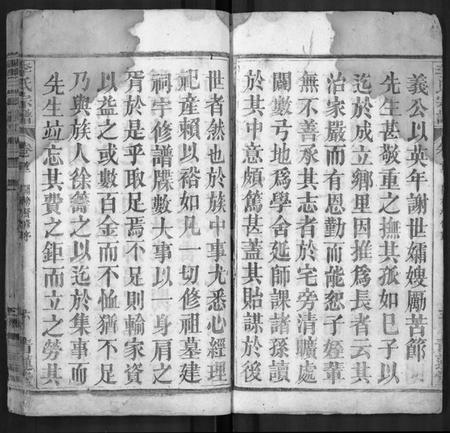 義公以英年謝世孀嫂勵苦節
先生甚敬重之撫其孤如已子以
迄於成立鄉里因推爲長者云其
治家嚴而有恩勤而能恕子姪輩
無不善承其志者於宅旁清曠處
闢數弓地爲學舍延師課諸孫讀
於其中意頗篤甚蓋其貽謀於後
世者然也於族中事尤悉心經理
祀產賴以裕如凡一切修祖墓建
祠宇修譜牒數大事以一身肩之
胥於是乎取足焉不足則輸家資
以益之或數百金而不恤猶不足
乃與族人徐籌之以迄於集事而
先生竝忘其費之鉅而立之勞其